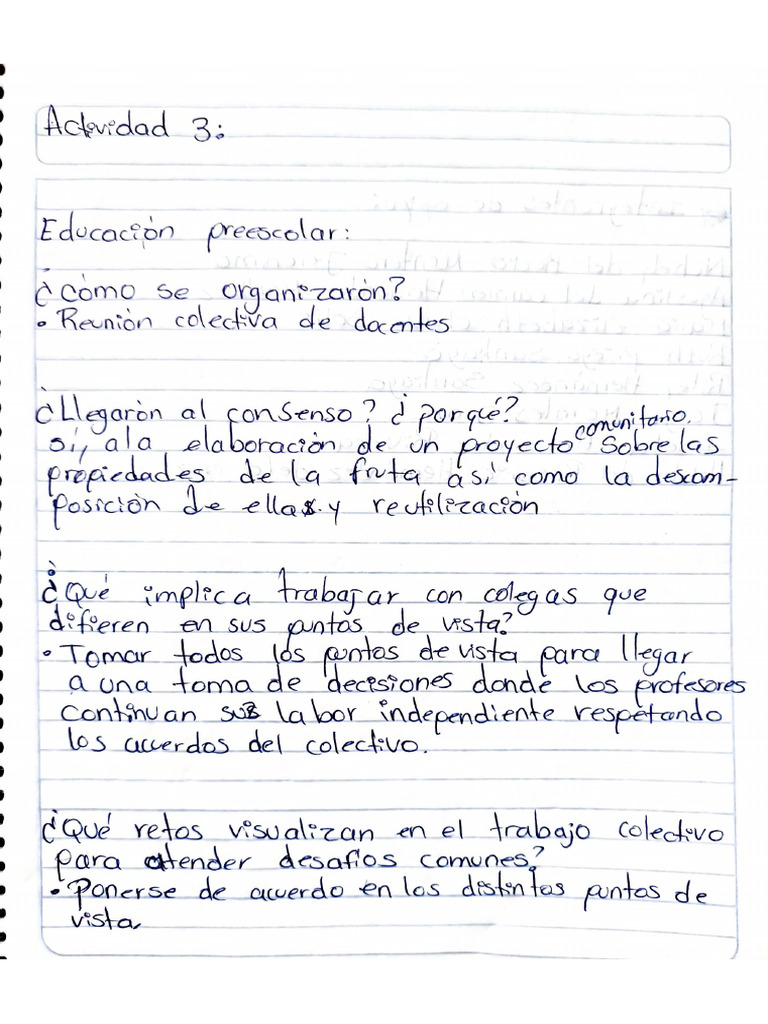 Actividad 3:
Educación preescolar:
¿Cómo se organizarón?
• Reunión colectiva de docentes
¿Llegarón al consenso? ¿porqué?
comunitario.
sí, ala elaboración de un proyecto sobre las
propiedades de la fruta así como la descom-
posición de ellas y reutilización
¿Qué implica trabajar con colegas que
difieren en sus puntos de vista?
• Tomar todos los puntos de vista para llegar
a una toma de decisiones donde los profesores
continuan su labor independiente respetando
los acuerdos del colectivo.
¿Qué retos visualizan en el trabajo colectivo
para atender desafíos comunes?
• Ponerse de acuerdo en los distintos puntos de
vista.